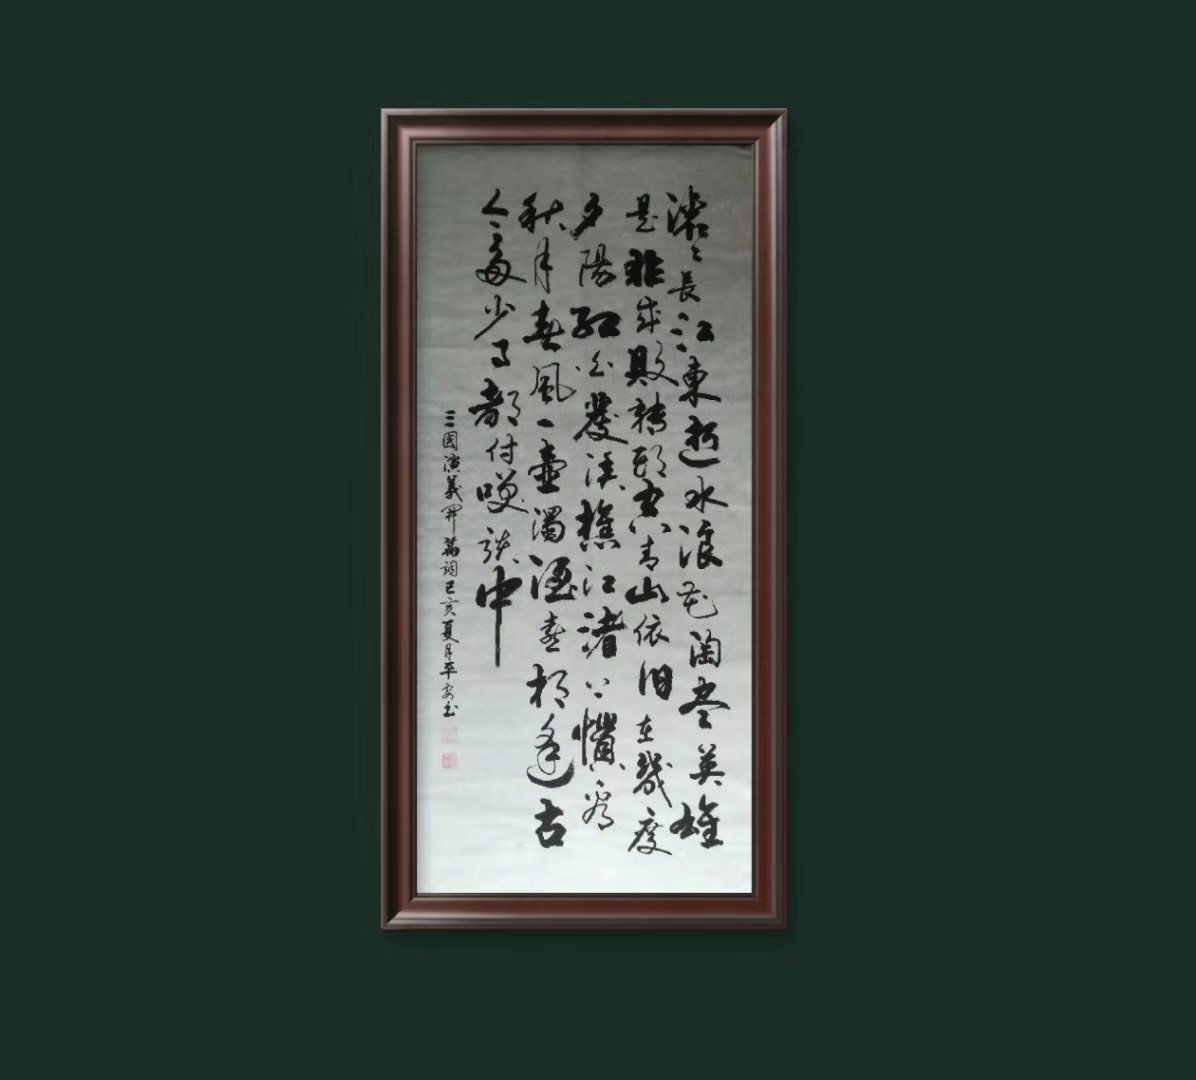 滚々長江東逝水浪花陶尽英雄
是非成敗转头空青山依旧在幾度
夕陽紅白发渔樵江渚上惯看
秋月春風一壶濁酒喜相逢古
今多少事都付笑谈中
三國演義開篇词己亥夏月平安书